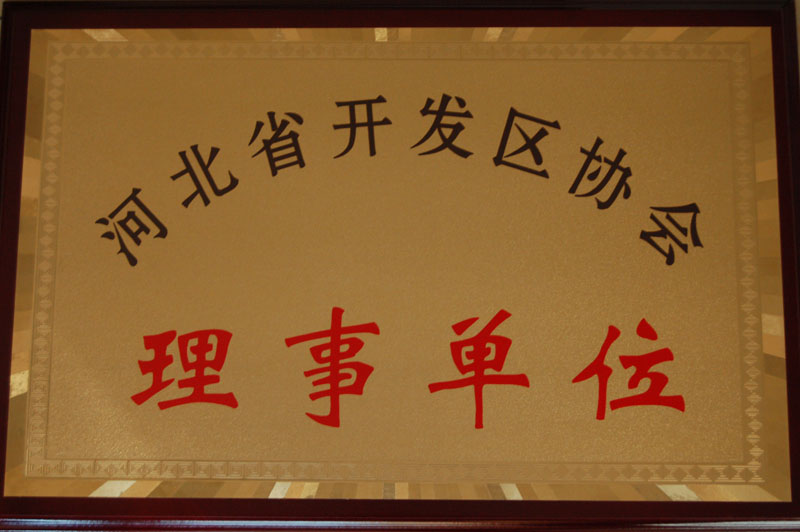 河北省开发区协会
理事单位